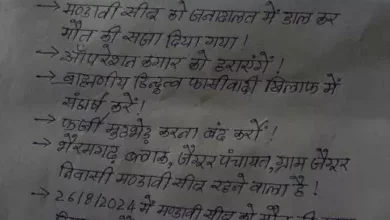 → मण्डावी सीब को जनाअदालत में डाल कर
मौत की सजा दिया गया !
→ ऑपरेशन कगार को हराएंगें !
→ ब्राह्मणीय हिन्दुत्व फासीवादी खिलाफ में
संघर्ष करें !
→ फर्जी मुठभेड़ करना बंद करों !
→ भैरमगढ़ ब्लाक, जैगूर पंचायत, ग्राम जैगूर
निवासी मण्डावी सीब रहने वाला है !
→ 26/8/2024 में मण्डावी सीब को